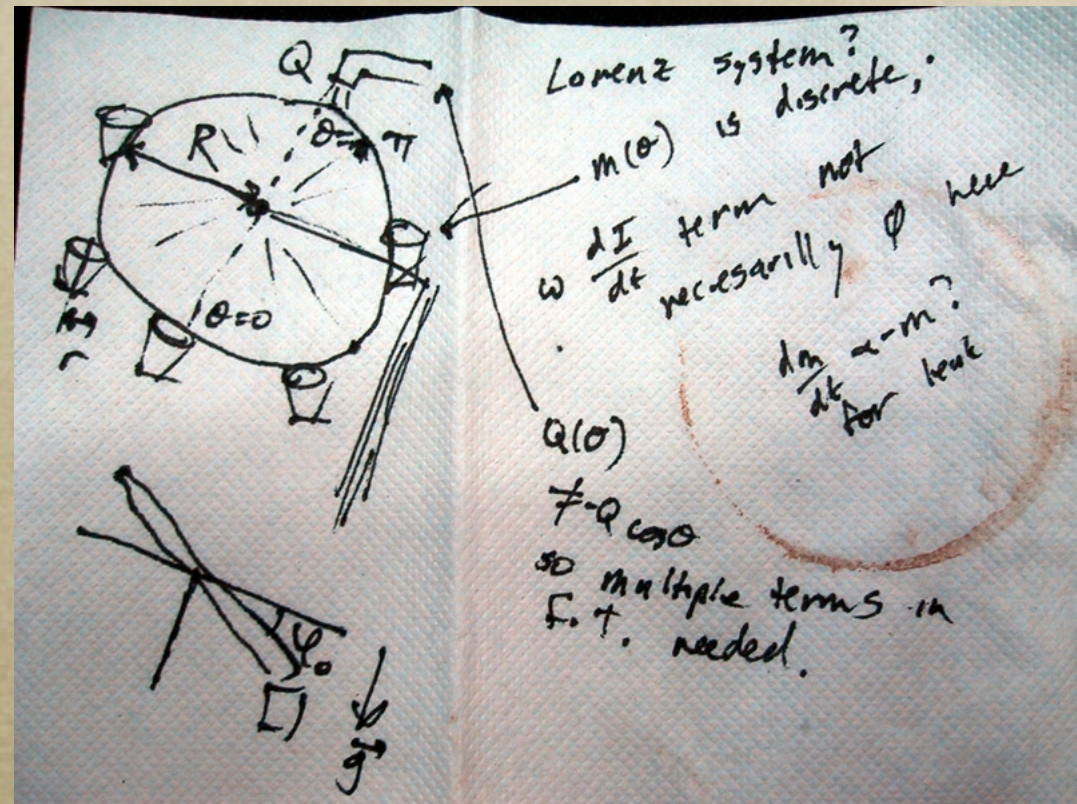 Q
R
θ=π
θ=0
r
φ₀
g
Lorenz system?
m(θ) is discrete,
ω dI/dt term not
necesarilly φ here
dm/dt ∝ -m?
for leak
Q(θ)
≠-Q cosθ
so multiple terms in
F.T. needed.